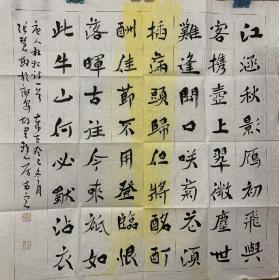 江涵秋影雁初飛與
客攜壺上翠微塵世
難逢開口咲菊花須
插滿頭歸但將酩酊
酬佳節不用登臨恨
落暉古往今來祗如
此牛山何必獨沾衣
唐人杜牧詩一首